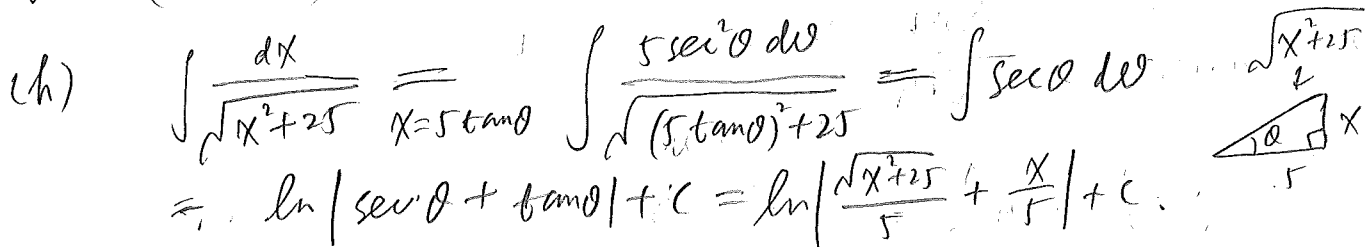 (h) ∫ dx/√(x²+25) = (x=5tanθ) ∫ 5sec²θ dθ/√((5tanθ)²+25) = ∫ secθ dθ
√(x²+25)
θ x
5
= ln|secθ + tanθ| + C = ln|√(x²+25)/5 + x/5| + C.